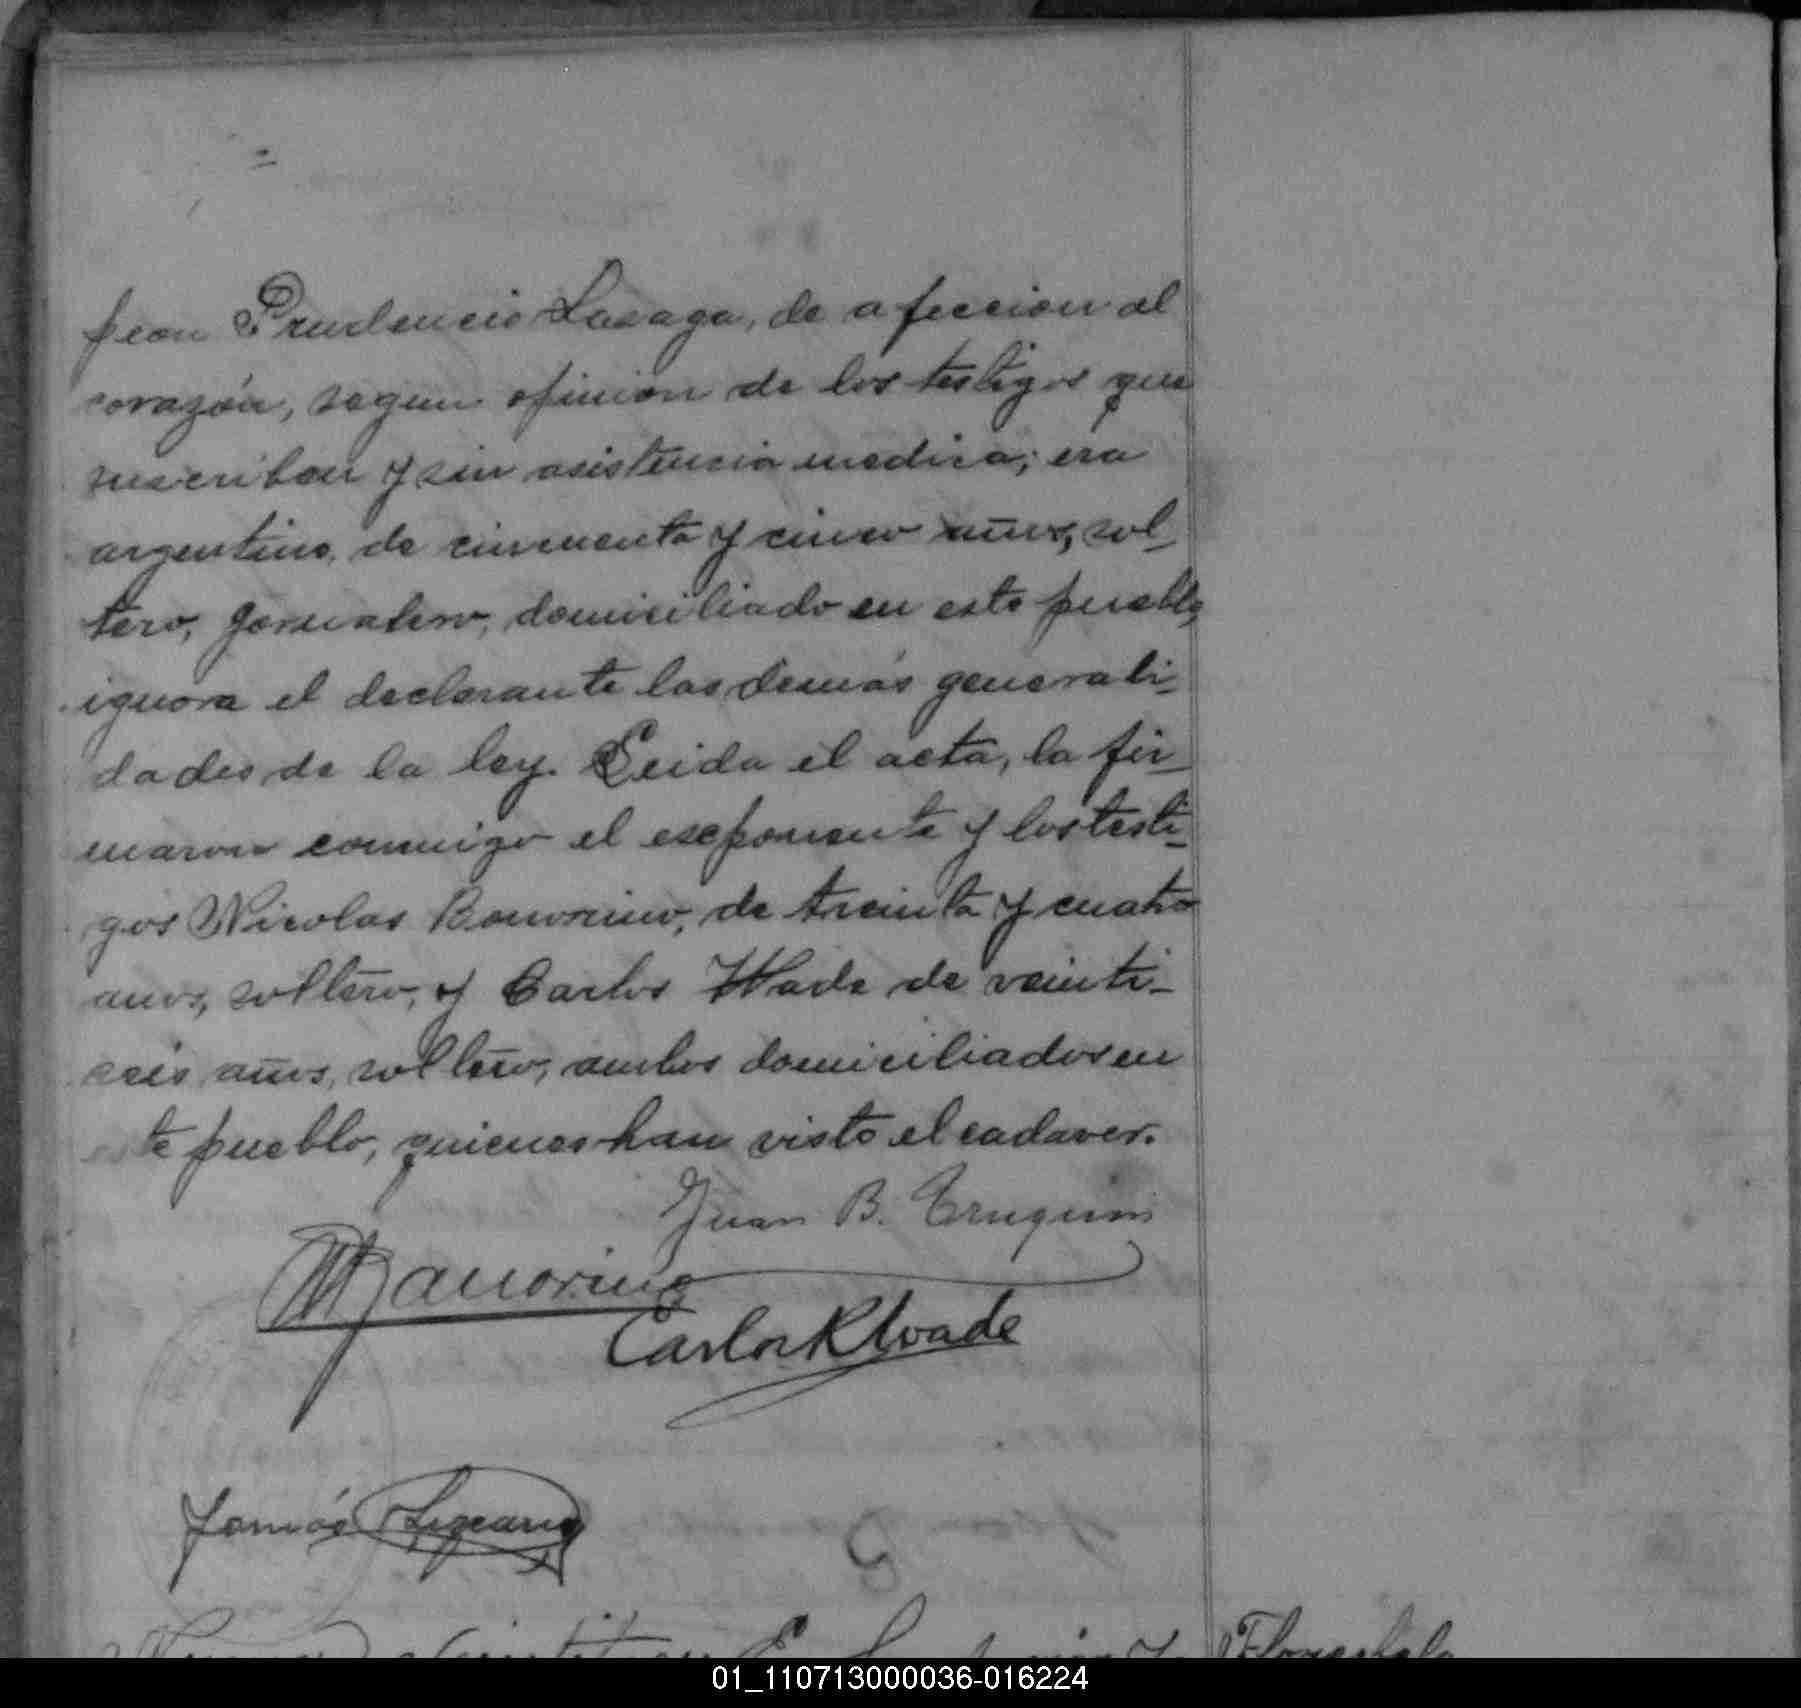 peon Prudencio Lasaga, de afeccion al
corazón, segun opinion de los testigos que
suscriben y sin asistencia medica; era
argentino, de cincuenta y cinco años, sol-
tero, jornalero, domiciliado en este pueblo,
ignora el declarante las demás generali-
dades de la ley. Leida el acta, la fir-
maron conmigo el esponente y los testi-
gos Nicolas Bonorino, de treinta y cuatro
anos, soltero, y Carlos Wade de veinti-
seis años, soltero, ambos domiciliados en
este pueblo, quienes han visto el cadaver.
Juan B.
NBonorino
Carlos R Wade
Tomás
01_110713000036-016224